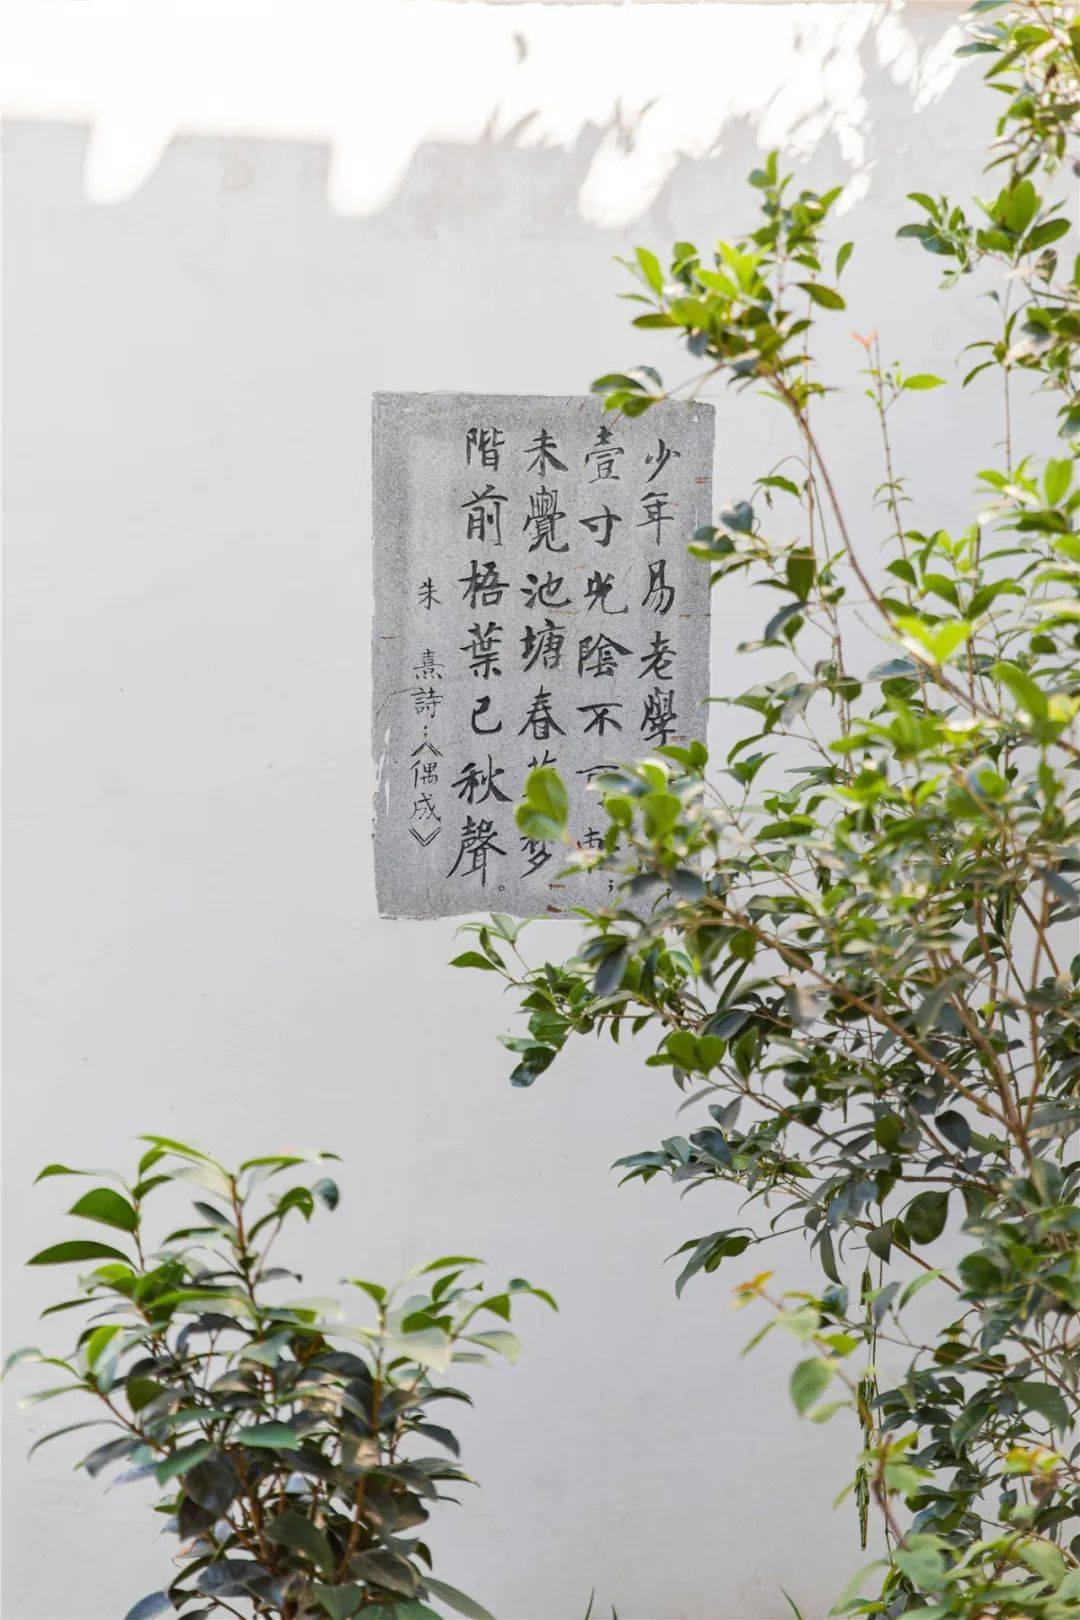 少年易老學
壹寸光陰不可
未覺池塘春草梦
階前梧葉已秋聲。
朱熹詩：《偶成》